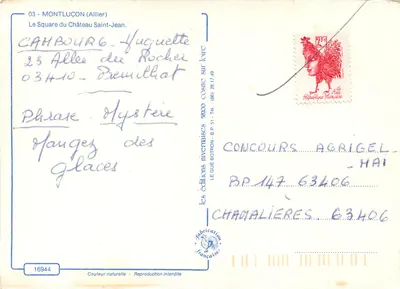 03 - MONTLUÇON (Allier)
Le Square du Château Saint-Jean.
CAMBOURG - Huguette
23 Allée du Rocher
03410 - Prémilhat
Phrase Mystère
Mangez des
glaces.
les éditions nivernaises 58200 cosne sur loire
LE GUE BOTRON - B.P. 51 - Tél. (86) 28-17-49
République Française
CONCOURS AGRIGEL-
MAI
BP 147 63406
CHAMALIÈRES. 63406
fabrication
française
16944
Couleur naturelle - Reproduction interdite